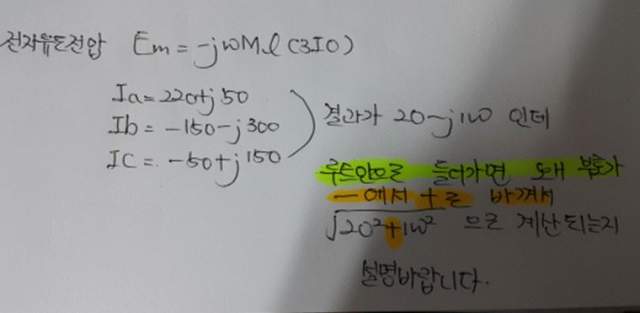 전자유도전압 Em = -jωMl(3I0)
Ia = 220+j50
Ib = -150-j300
IC = -50+j150
결과가 20-j100 인데
루트안으로 들어가면 왜 부호가
-에서 +로 바껴서
√20²+100² 으로 계산되는지
설명바랍니다.